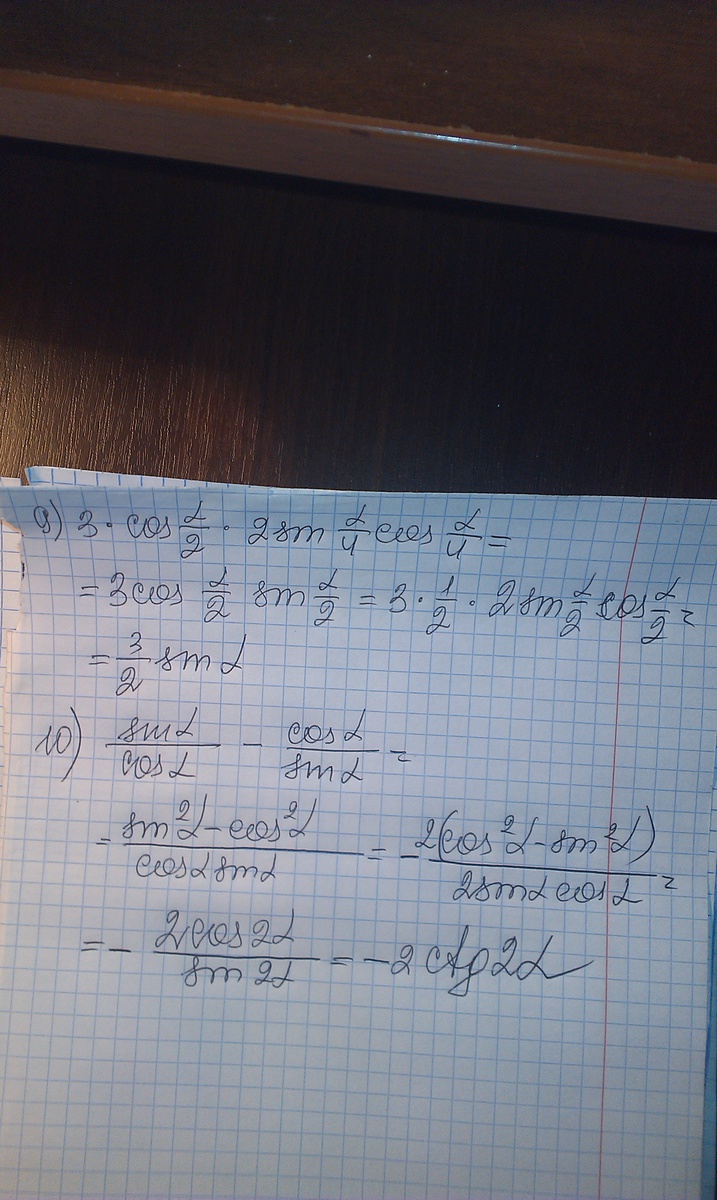 9) 3 · cos α/2 · 2 sin α/4 cos α/4 =
= 3 cos α/2 sin α/2 = 3 · 1/2 · 2 sin α/2 cos α/2 =
= 3/2 sin α
10) sin α / cos α - cos α / sin α =
= (sin²α - cos²α) / (cos α sin α) = - 2(cos²α - sin²α) / (2 sin α cos α) =
= - 2 cos 2α / sin 2α = -2 ctg 2α